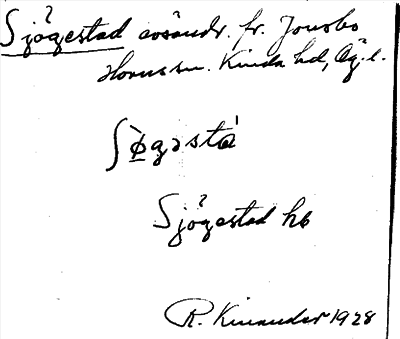 Sjögestad avsöndr. fr. Jonsbo
Hornssn. Kinda hd, Ög. l.
Sǿgəstà
Sjögestad hb
R. Kinander 1928